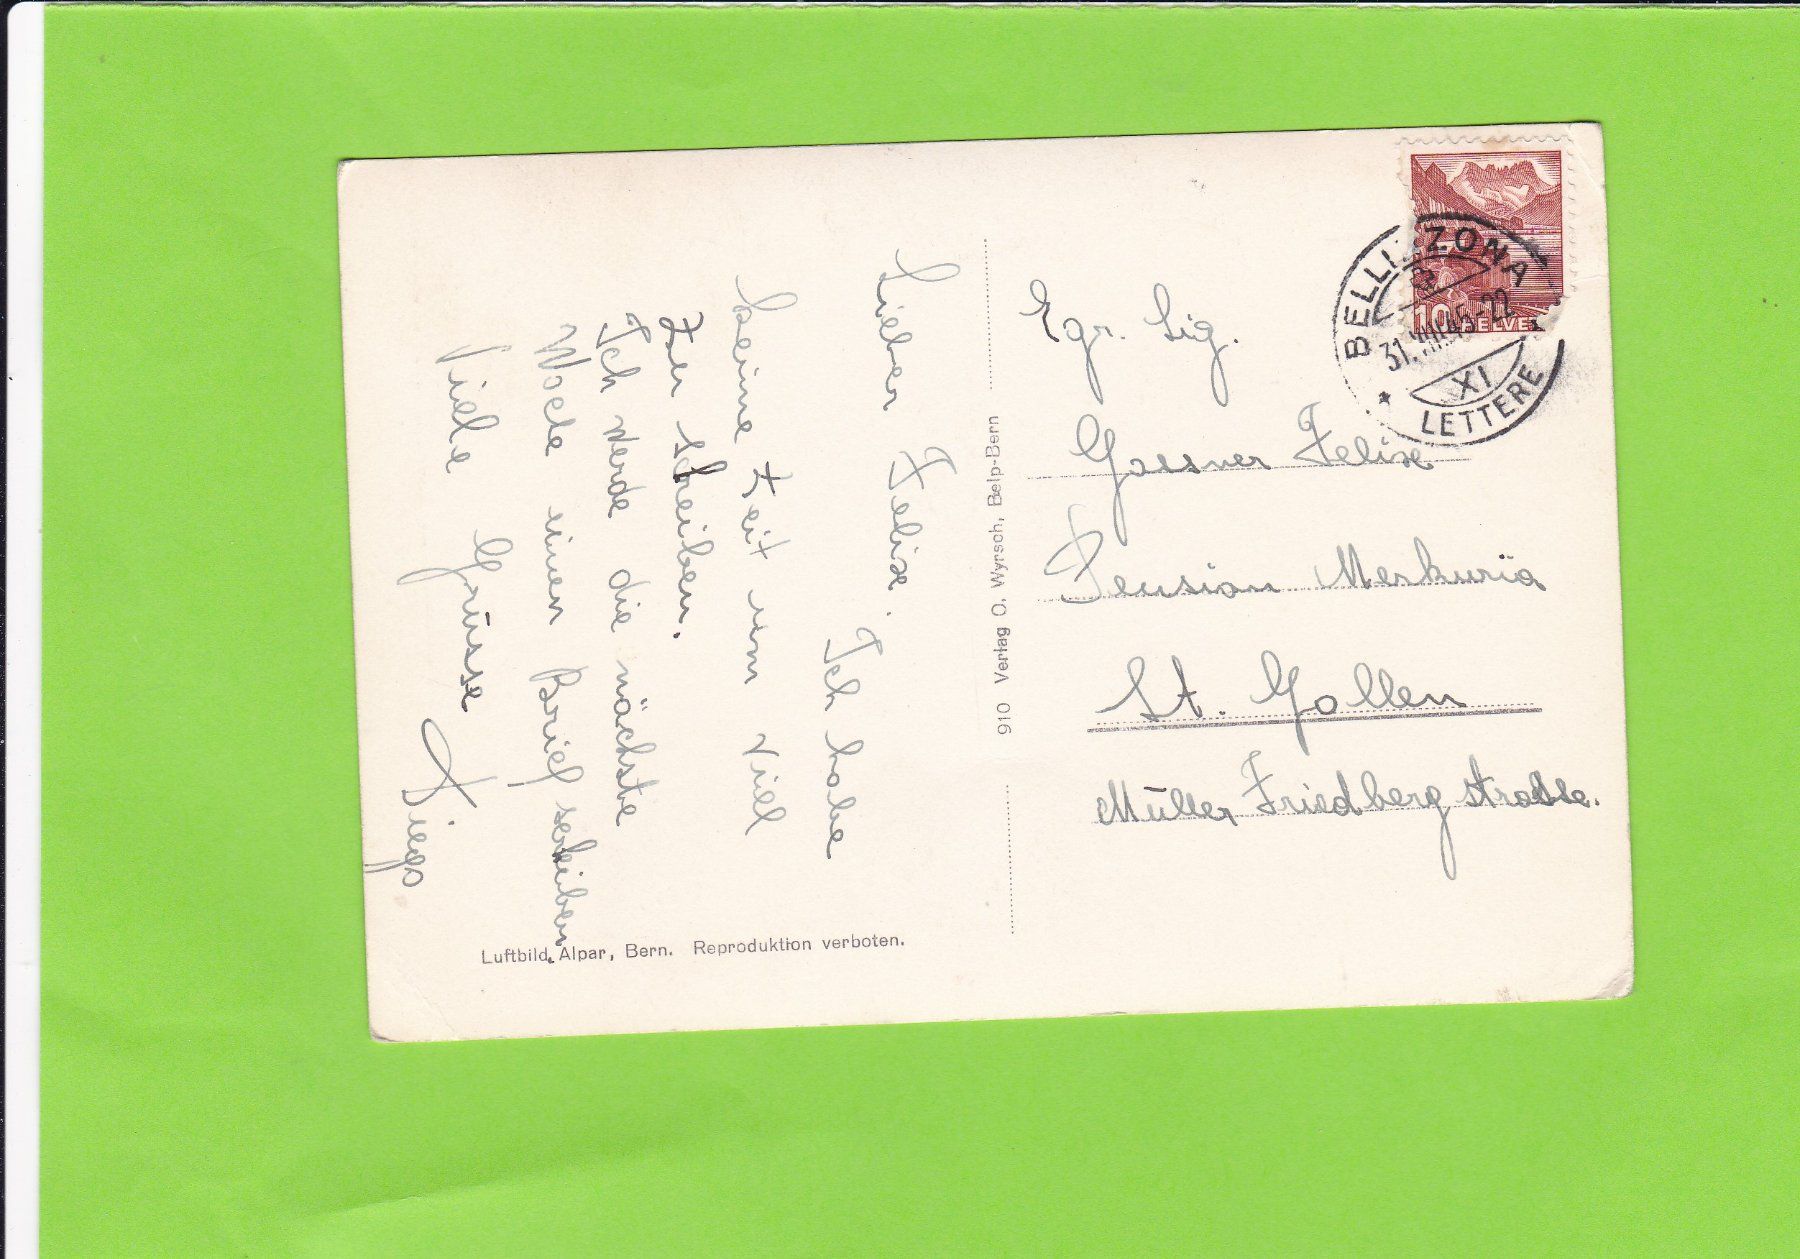 Lieber Felix.
Ich habe
keine Zeit um vill
zu scheiben.
Ich werde die nächste
Woche einen Brief scheiben
Viele Grüsse
Diego
910 Verlag O. Wyrsch, Belp-Bern
Luftbild Alpar, Bern. Reproduktion verboten.
BELLINZONA
31.VIII.45-22
XI
LETTERE
10 HELVE
Egr. Sig.
Gassner Felix
Pension Merkuria
St. Gallen
Müller Friedberg strasse.